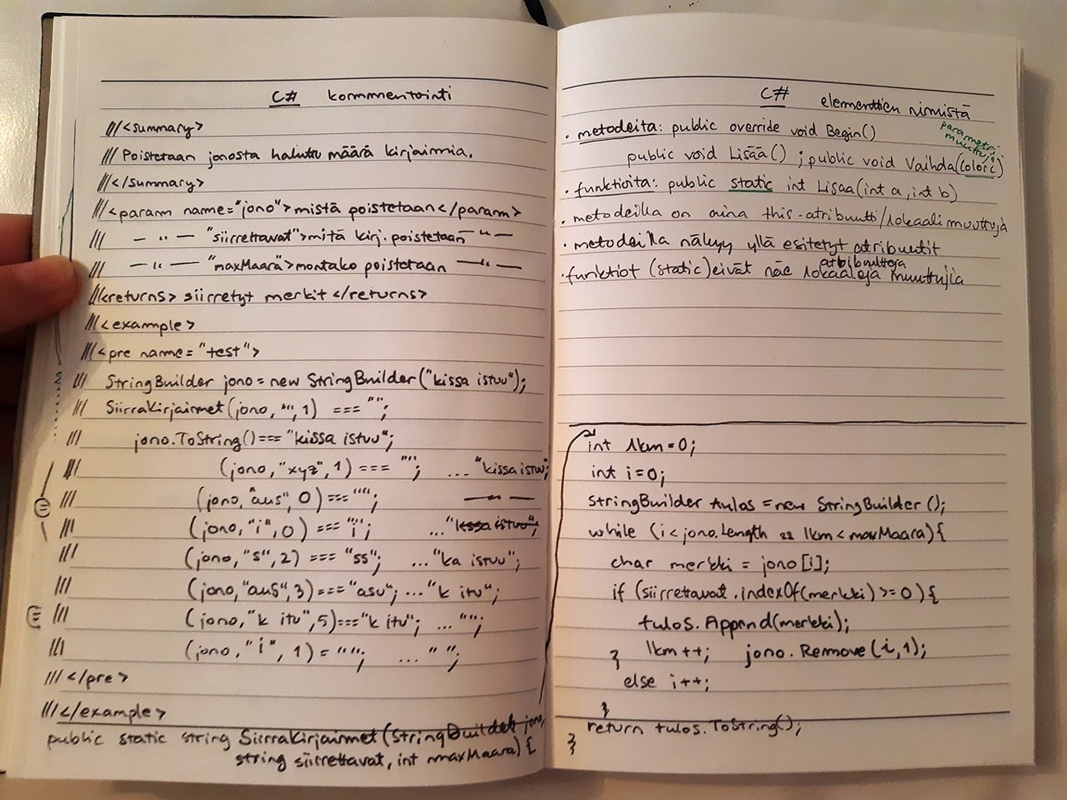 C# kommentointi
///<summary>
/// Poistetaan jonosta haluttu määrä kirjaimia.
///</summary>
///<param name="jono">mistä poistetaan</param>
/// — " — "siirrettavat">mitä kirj. poistetaan — " —
/// — " — "maxMaara">montako poistetaan — " —
///<returns> siirretyt merkit </returns>
///<example>
///<pre name="test">
/// StringBuilder jono = new StringBuilder("kissa istuu");
/// SiirraKirjaimet(jono, "", 1) === "";
/// jono.ToString() === "kissa istuu";
/// (jono, "xyz", 1) === ""; ... "kissa istuu";
/// (jono, "aus", 0) === ""; — " —
/// (jono, "i", 0) === "i"; ... "kissa istuu";
/// (jono, "s", 2) === "ss"; ... "ka istuu";
/// (jono, "aus", 3) === "asu"; ... "k itu";
/// (jono, "k itu", 5) === "k itu"; ... "";
/// (jono, "i", 1) = ""; ... "";
///</pre>
///</example>
public static string SiirraKirjaimet(StringBuilder jono,
string siirrettavat, int maxMaara) {
C# elementtien nimistä
parametri
muuttuja
· metodeita: public override void Begin()
public void Lisää() ; public void Vaihda(Color c)
· funktioita: public static int Lisaa(int a, int b)
· metodeilla on aina this-atribuutti/lokaali muuttuja
· metodeilla näkyy yllä esitetyt atribuutit
atribuutteja
· funktiot (static) eivät näe lokaaleja muuttujia
int lkm = 0;
int i = 0;
StringBuilder tulos = new StringBuilder();
while (i < jono.Length && lkm < maxMaara) {
char merkki = jono[i];
if (siirrettavat.indexOf(merkki) >= 0) {
tulos.Append(merkki);
} lkm++; jono.Remove(i, 1);
else i++;
}
return tulos.ToString();
}